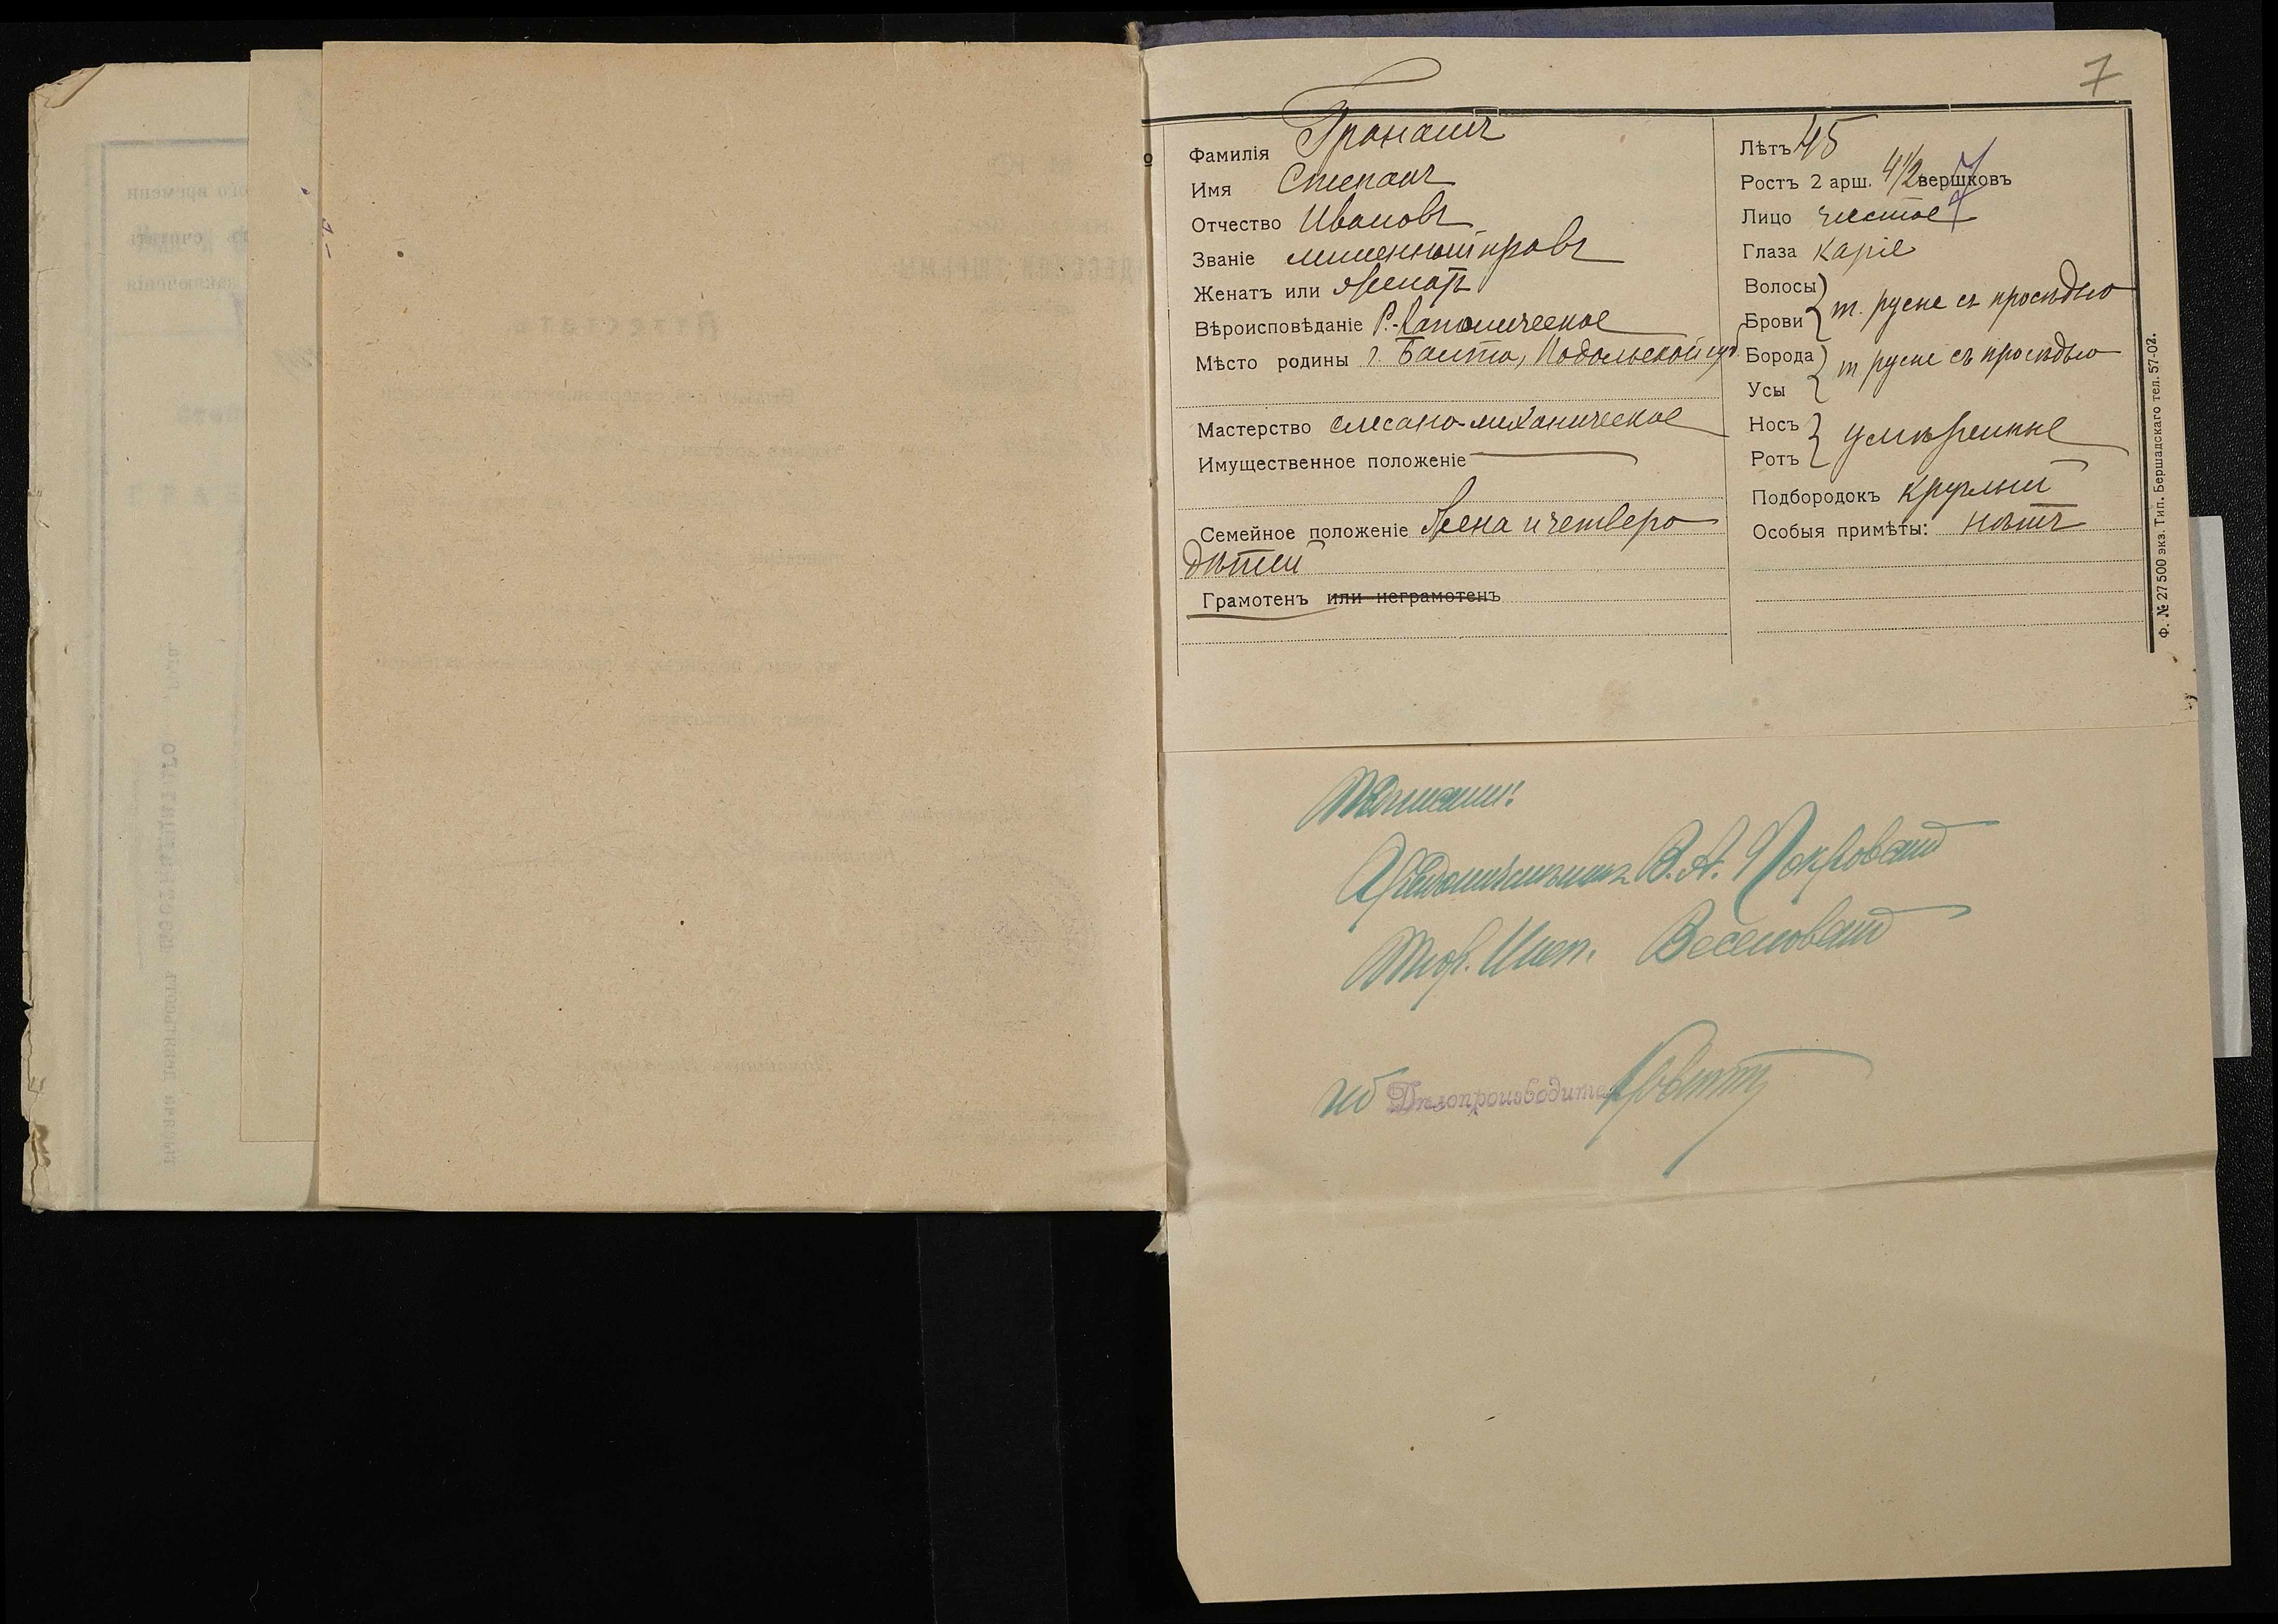 7
Фамилія Гронашъ
Имя Степанъ
Отчество Ивановъ
Званіе лишенный правъ
Женатъ или женатъ
Вѣроисповѣданіе Р.-Католическое
Мѣсто родины г. Балта, Подольской губ.
Мастерство слесарно-механическое
Имущественное положеніе
Семейное положеніе Жена и четверо
дѣтей
Грамотенъ или неграмотенъ
Лѣтъ 45
Ростъ 2 арш. 4 1/2 вершковъ
Лицо чистое
Глаза каріе
Волосы
Брови т. русые съ просѣдью
Борода
Усы т русые съ просѣдью
Носъ
Ротъ умѣренные
Подбородокъ круглый
Особыя примѣты: нѣтъ
Ф. № 27 500 экз. Тип. Бершадскаго тел. 57-02.
Подписали:
В. А. Покровскій
Тюр. Инсп.
и об Дѣлопроизводитель